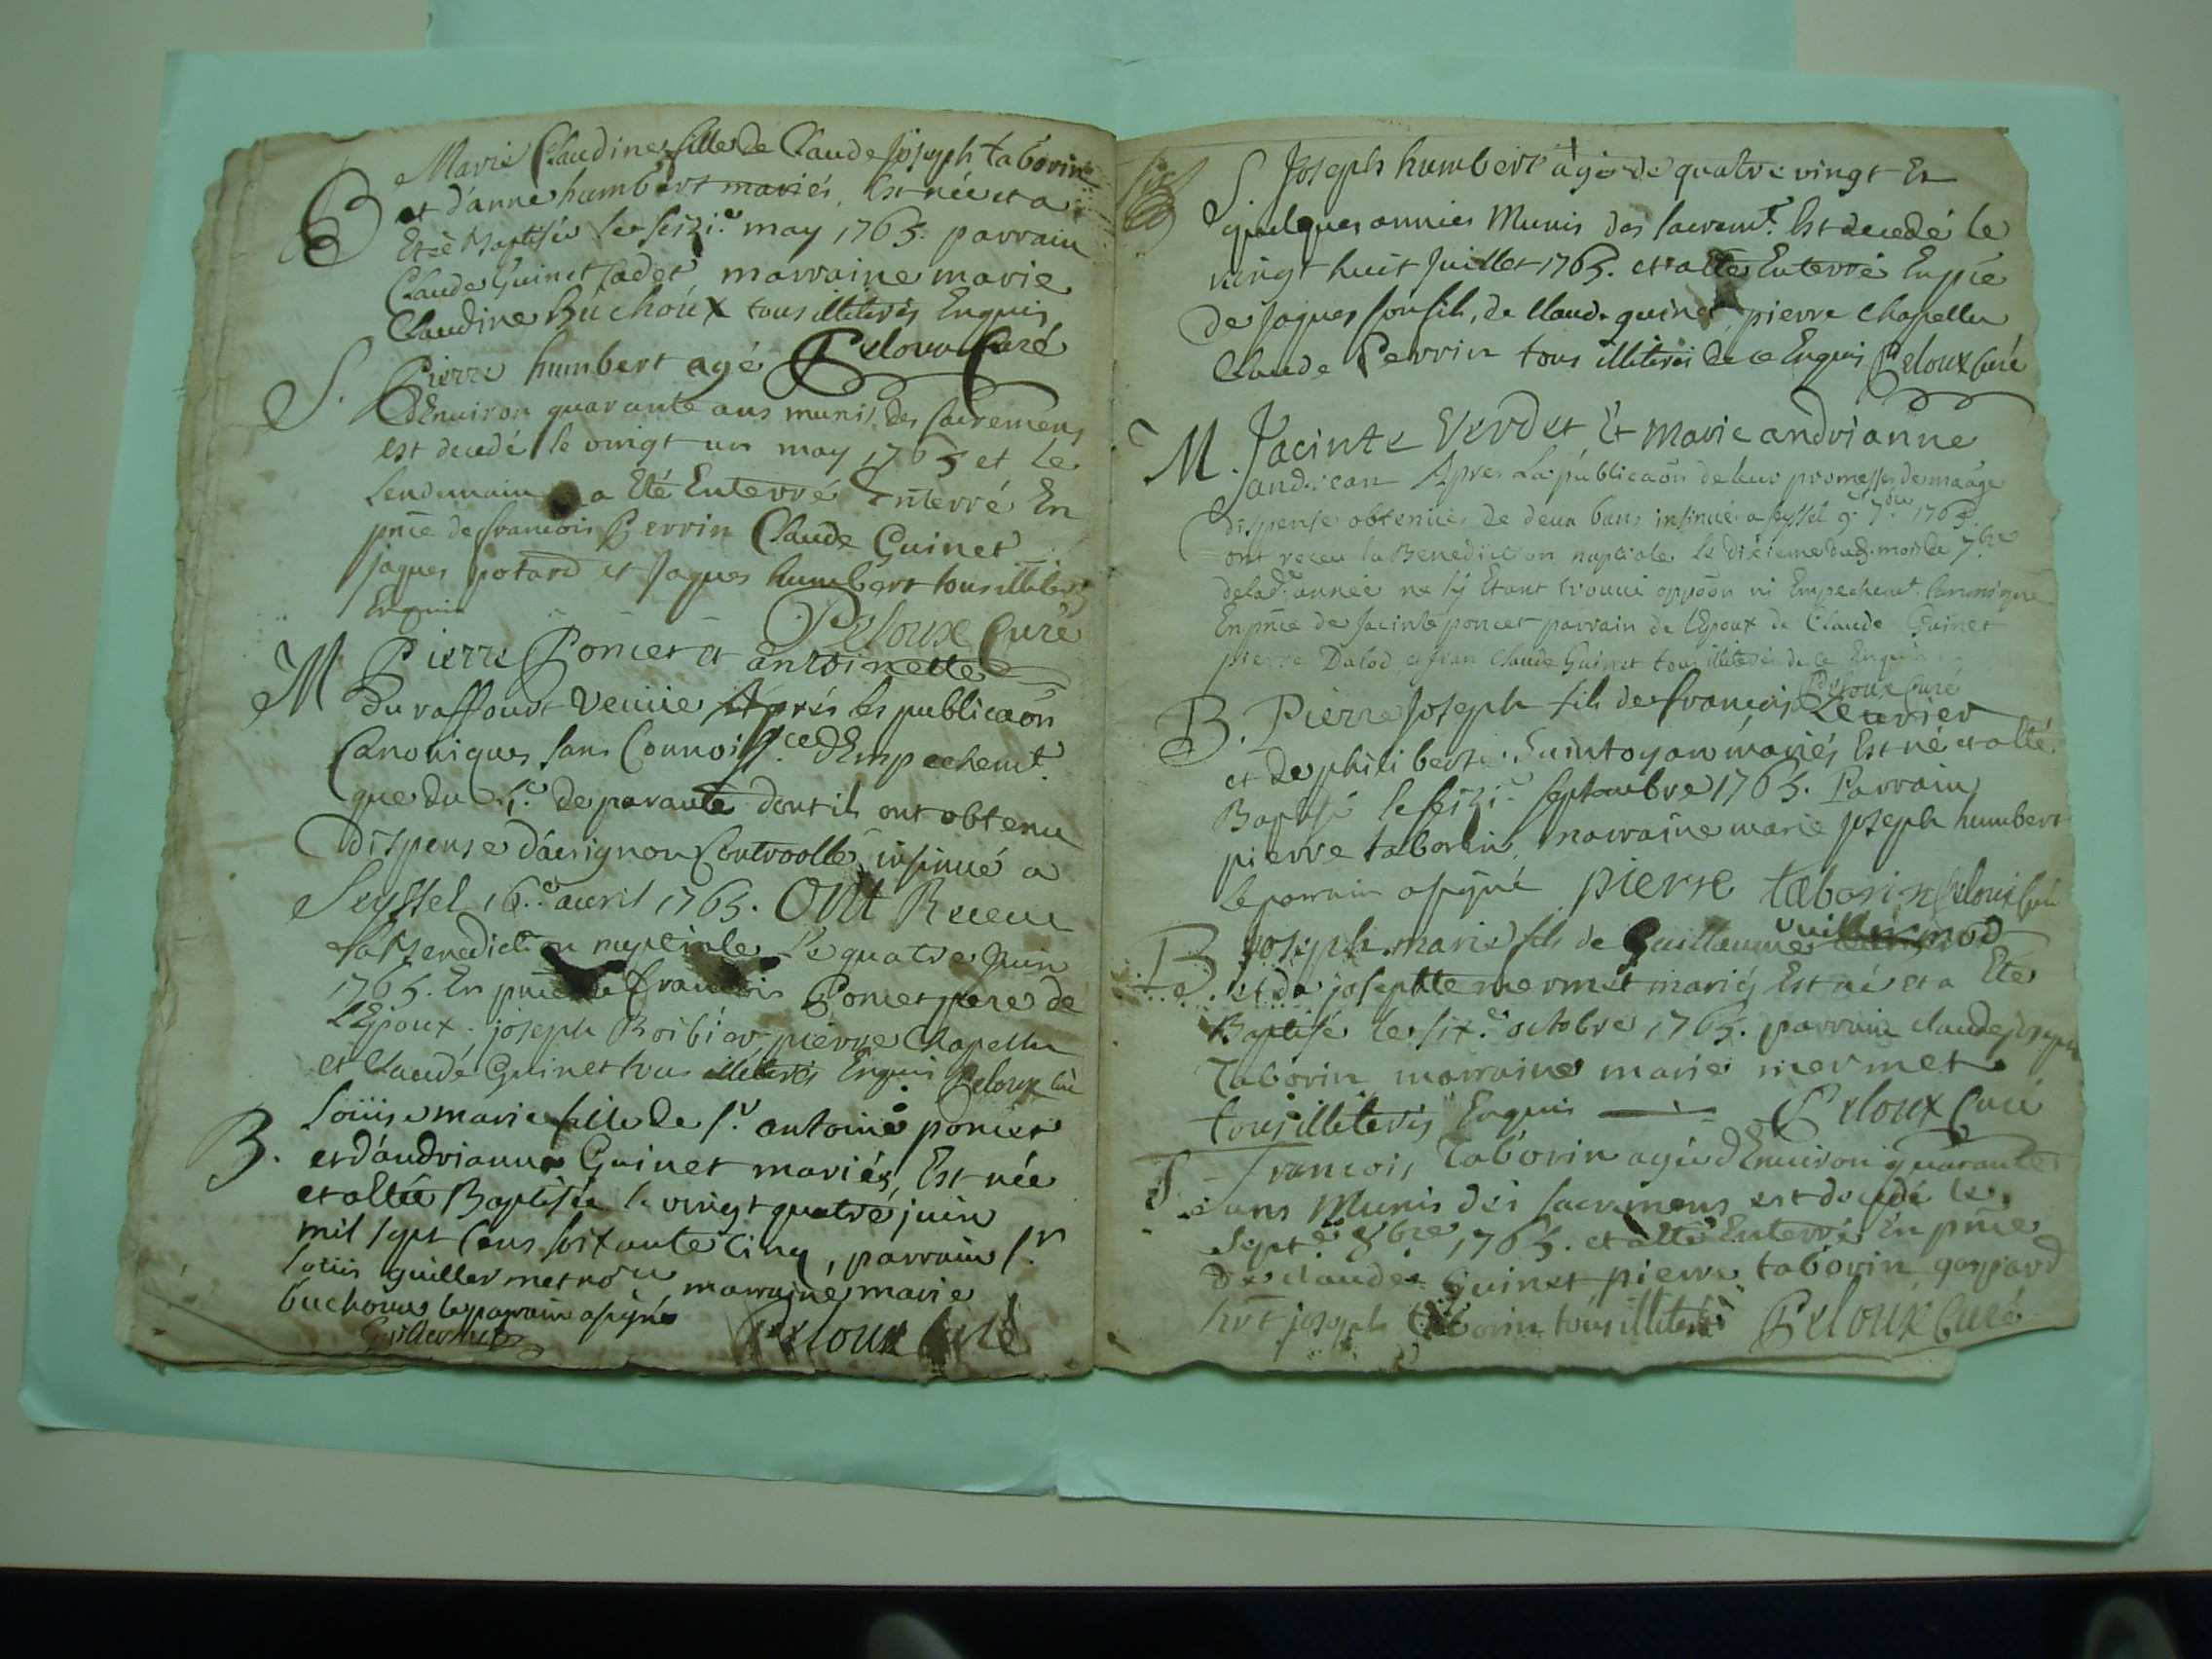 Marie Claudine fille de Claude Joseph taborin
B et d'anne humbert mariés, Est née et a
Eté Baptisée le sezi.e may 1765. parrain
Claude Guinet Cadet marraine marie
Claudine Buchoux tous illiterés Enquis
Peloux Curé
S. Pierre humbert agé
d'Environ quarante ans munis des sacremens
est decedé le vingt un may 1765 et le
lendemain a Eté Enterré Enterré En
pnce de francois Perrin Claude Guinet
jaques potard et Jaques humbert tous illiterés
Enquis
Peloux Curé
M Pierre Poncet et antoinette
du raffour veuve Aprés les publicaõn
Canoniques sans Connoiss.ce d'Empechemt.
que du 4.e de parante dont ils ont obtenu
dispense d'avignon Controollé insinué a
Seyssel 16.e avril 1765. Ont Receu
la Benediction nuptiale le quatre Juin
1765. En pnce de francois Poncet pere de
l'Epoux, joseph Boibier, pierre Chapellu
et Claude Guinet tous illiterés Enquis Peloux Curé
B. Loüise marie fille de s.r antoine poncet
et d'andrianne Guinet mariés, Est née
et a Eté Baptisée le vingt quatre juin
mil sept Cens soixante Cinq, parrain s.r
loüis guillermet marraine marie
buchoux le parrain a signé
Guillermet
Peloux Curé
S Joseph humbert agé de quatre vingt Et
quelques annies Munis des sacremt. Est decedé le
vingt huit Juillet 1765. et a Eté Enterré En pnce
de Jaques son fils, de Claude guinet, pierre Chapellu
Claude Perrin tous illiterés de ce Enquis Peloux Curé
M. Jacinte Verdet Et Marie andrianne
Jandjean Apres La publicaõn de leur promesses de maage
dispense obtenue de deux bans insinué a Seyssel 9.e 7.bre 1765.
ont receu la Benediction nuptiale le dixieme dud. mois de 7.bre
de lad. année ne s'y Etant trouvé oppõon ni Empechemt. Canonique
En pnce de Jacinte poncet parrain de l'Epoux de Claude Guinet
pierre Dalod et fran Claude Guinet tous illiterés de ce Enquis
Peloux Curé
B. Pierre Joseph fils de francois Levrier
et de philiberte Saintoyan mariés Est né et a Eté
Baptisé le sezi.e septembre 1765. Parrain
pierre taborin, marraine marie joseph humbert
le parrain a signé pierre taborin Peloux Curé
B Joseph marie fils de Guillaume vuillermod
et de josephte mermet mariés Est né et a Eté
Baptisé le six.e octobre 1765. parrain claude joseph
Taborin marraine marie mermet
tous illiterés Enquis Peloux Curé
S. francois Taborin agé d'Environ quarante
ans Munis des sacremens est decedé le
sept.e 8bre 1765. et a Eté Enterré En pnce
de claude Guinet pierre taborin gaspard
joseph taborin tous illiterés Peloux Curé